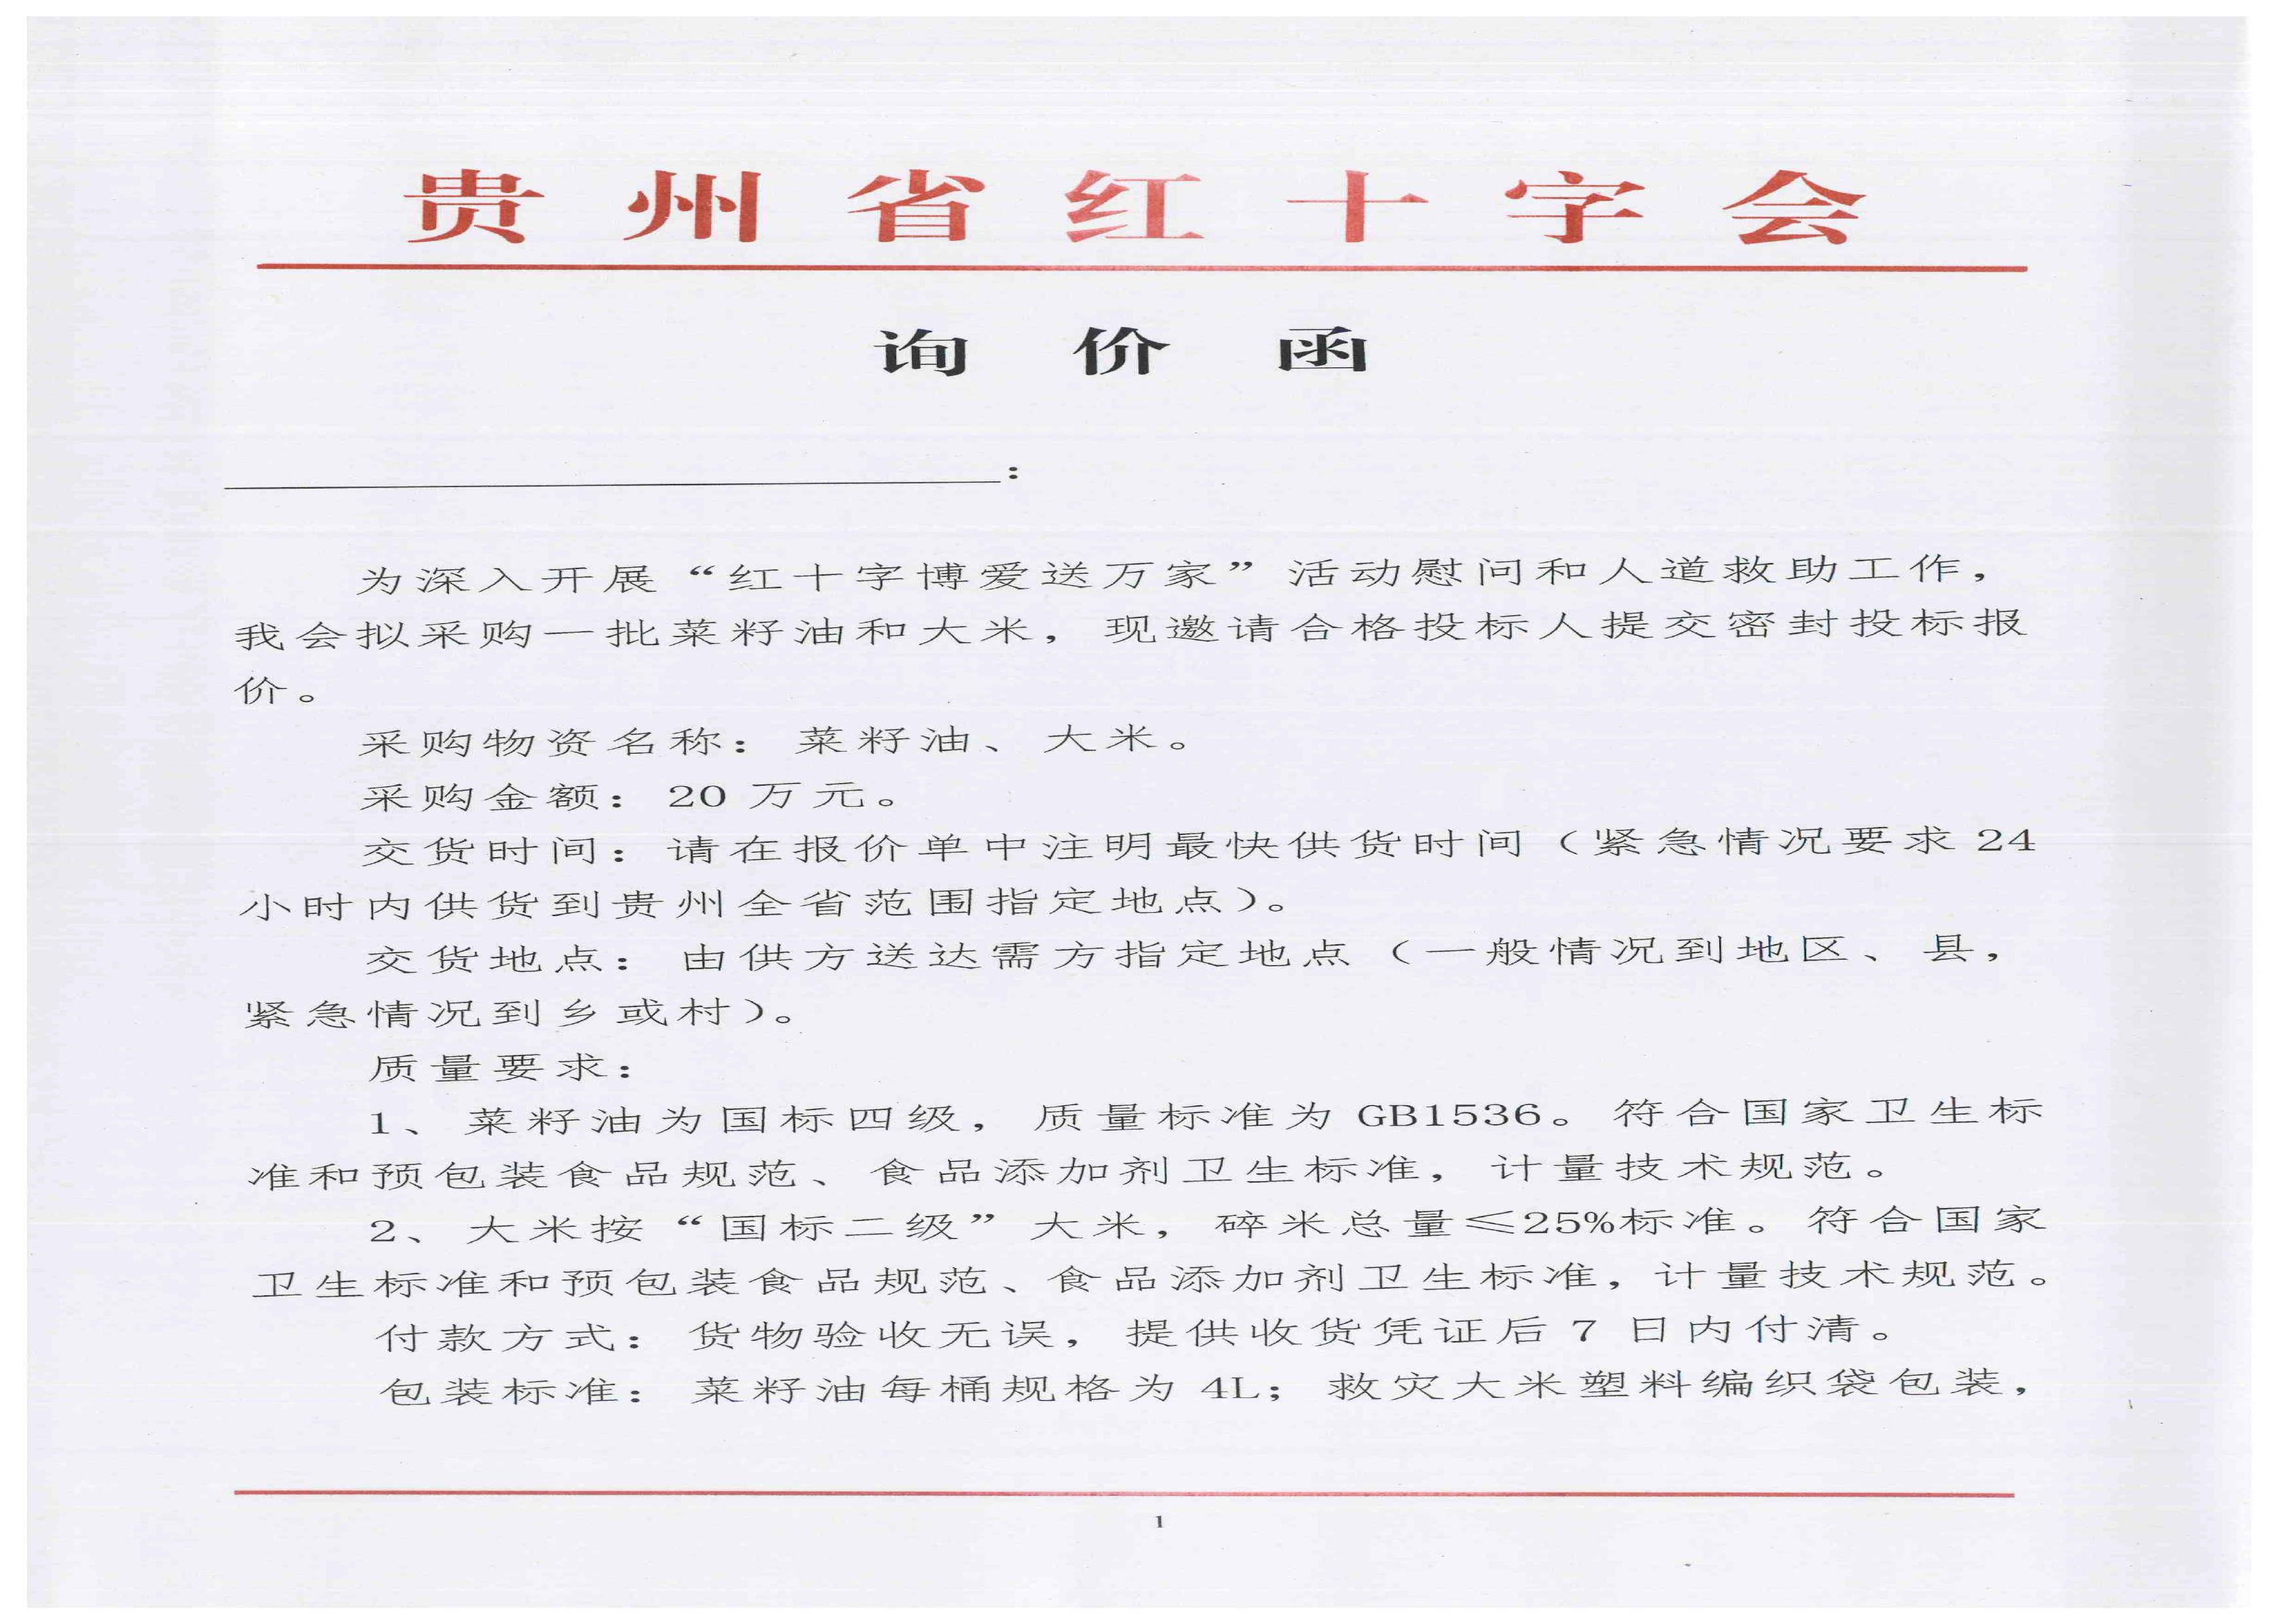 贵州省红十字会
询价函
:
为深入开展“红十字博爱送万家”活动慰问和人道救助工作，
我会拟采购一批菜籽油和大米，现邀请合格投标人提交密封投标报
价。
采购物资名称：菜籽油、大米。
采购金额：20 万元。
交货时间：请在报价单中注明最快供货时间（紧急情况要求 24
小时内供货到贵州全省范围指定地点）。
交货地点：由供方送达需方指定地点（一般情况到地区、县，
紧急情况到乡或村）。
质量要求：
1、菜籽油为国标四级，质量标准为 GB1536。符合国家卫生标
准和预包装食品规范、食品添加剂卫生标准，计量技术规范。
2、大米按“国标二级”大米，碎米总量≤25%标准。符合国家
卫生标准和预包装食品规范、食品添加剂卫生标准，计量技术规范。
付款方式：货物验收无误，提供收货凭证后 7 日内付清。
包装标准：菜籽油每桶规格为 4L；救灾大米塑料编织袋包装，
1